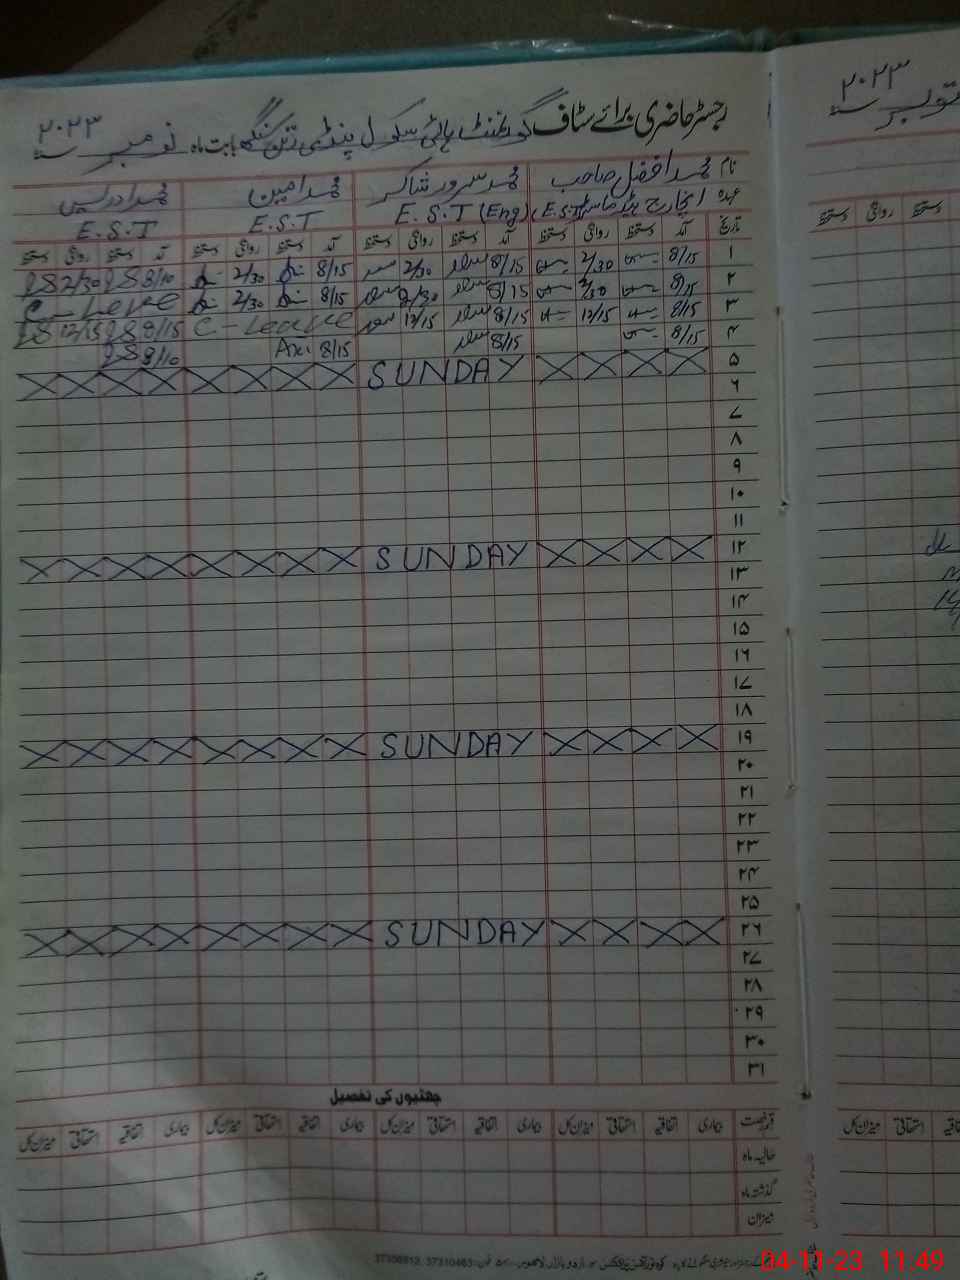 ۲۰۲۳
رجسٹر حاضری برائے سٹاف گورنمنٹ ہائی سکول پنڈی رتن سنگھ بابت ماہ نومبر سنہ ۲۰۲۳
نام محمد افضل صاحب محمد سرور شاکر محمد امین محمد ادریس
عہدہ انچارج ہیڈ ماسٹر E.S.T E.S.T (Eng) E.S.T E.S.T
تاریخ آمد دستخط روانگی دستخط آمد دستخط روانگی دستخط آمد دستخط روانگی دستخط آمد دستخط روانگی دستخط
۱ 8/15 2/30 8/15 2/30 8/15 2/30 8/10 2/30
۲ 8/15 2/30 8/15 2/30 8/15 2/30 C-Leave
۳ 8/15 12/15 8/15 12/15 C-Leave 8/15 12/15
۴ 8/15 8/15 8/15 8/10
۵ SUNDAY
۶
۷
۸
۹
۱۰
۱۱
۱۲ SUNDAY
۱۳
۱۴
۱۵
۱۶
۱۷
۱۸
۱۹ SUNDAY
۲۰
۲۱
۲۲
۲۳
۲۴
۲۵
۲۶ SUNDAY
۲۷
۲۸
۲۹
۳۰
۳۱
چھٹیوں کی تفصیل
قسم رخصت بیماری اتفاقیہ استحقاقی میزان کل بیماری اتفاقیہ استحقاقی میزان کل بیماری اتفاقیہ استحقاقی میزان کل بیماری اتفاقیہ استحقاقی میزان کل
حالیہ ماہ
گذشتہ ماہ
میزان
اردو بازار لاہور۔ فون: 37310463
04-11-23 11:49